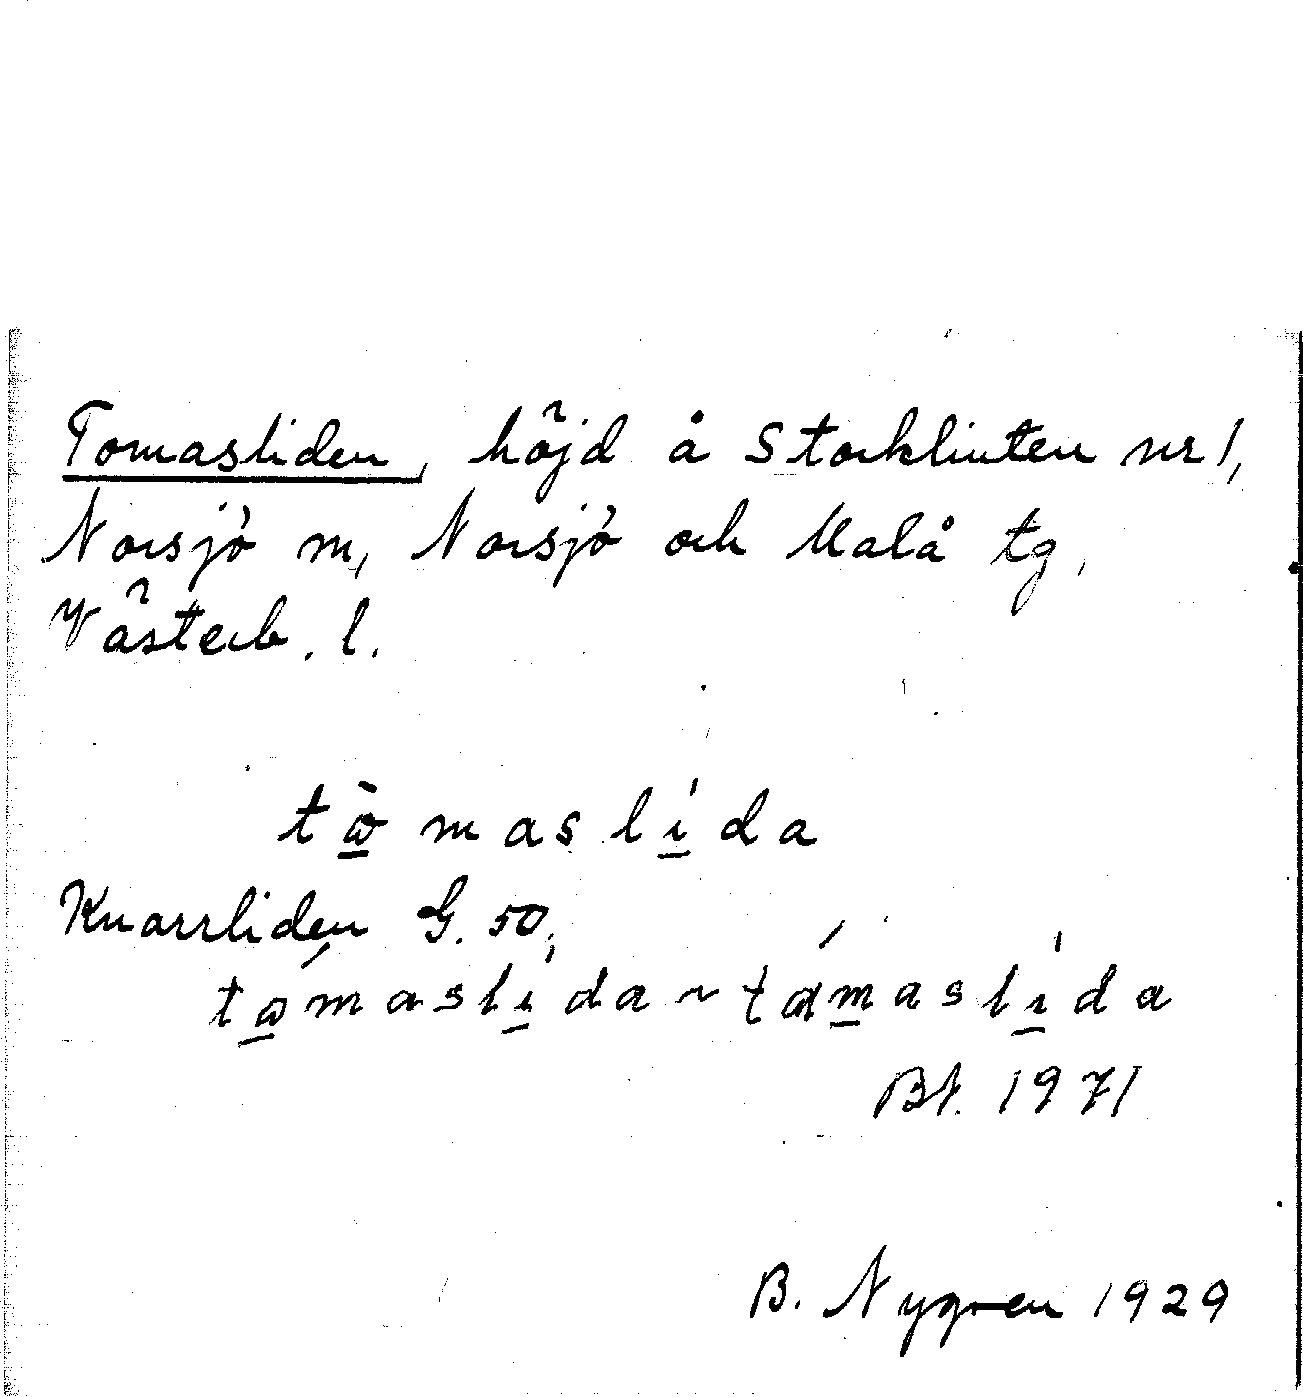 Tomasliden, höjd å Storklinten nr 1,
Norsjö m, Norsjö och Malå tg,
Västerb. l.
tὼ̲maslı̲́da
Knarrliden G. 50,
tώ̲maslı̲́da ~ tάm̲aslı̲́da
Bt. 1971
B. Nygren 1929